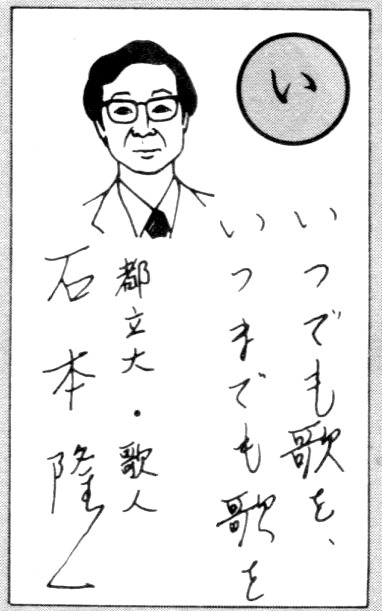 い
いつでも歌を、
いつまでも歌を
都立大・歌人
石本隆一